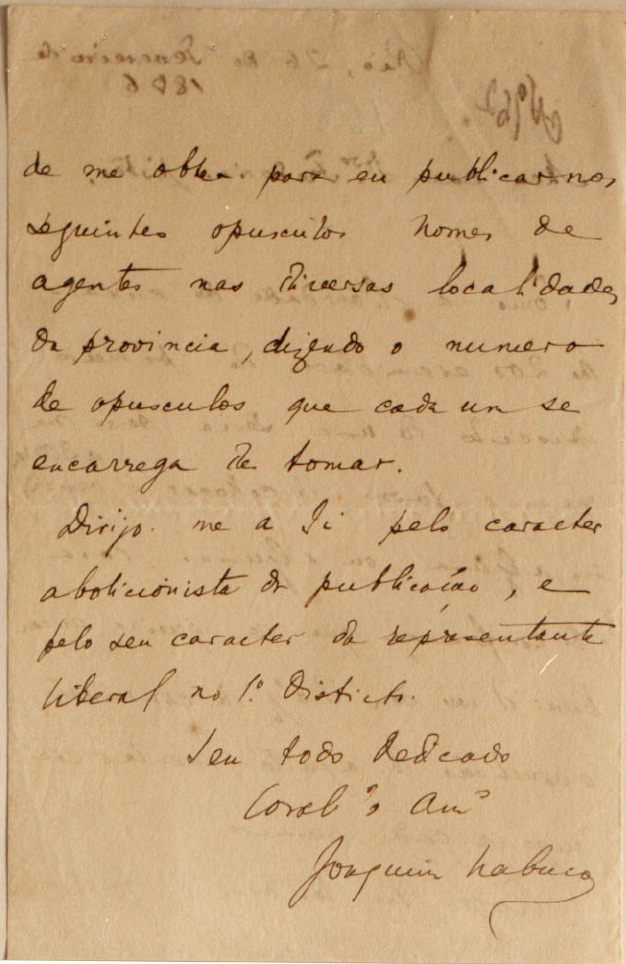 de me obter para eu publicar nos
seguintes opusculos nomes de
agentes nas diversas localidades
da provincia, dizendo o numero
de opusculos que cada um se
encarrega de tomar.
Dirijo-me a Si pelo caracter
abolicionista da publicação, e
pelo seu caracter de representante
liberal no 1º Districto.
Seu todo dedicado
Am°
Joaquim Nabuco